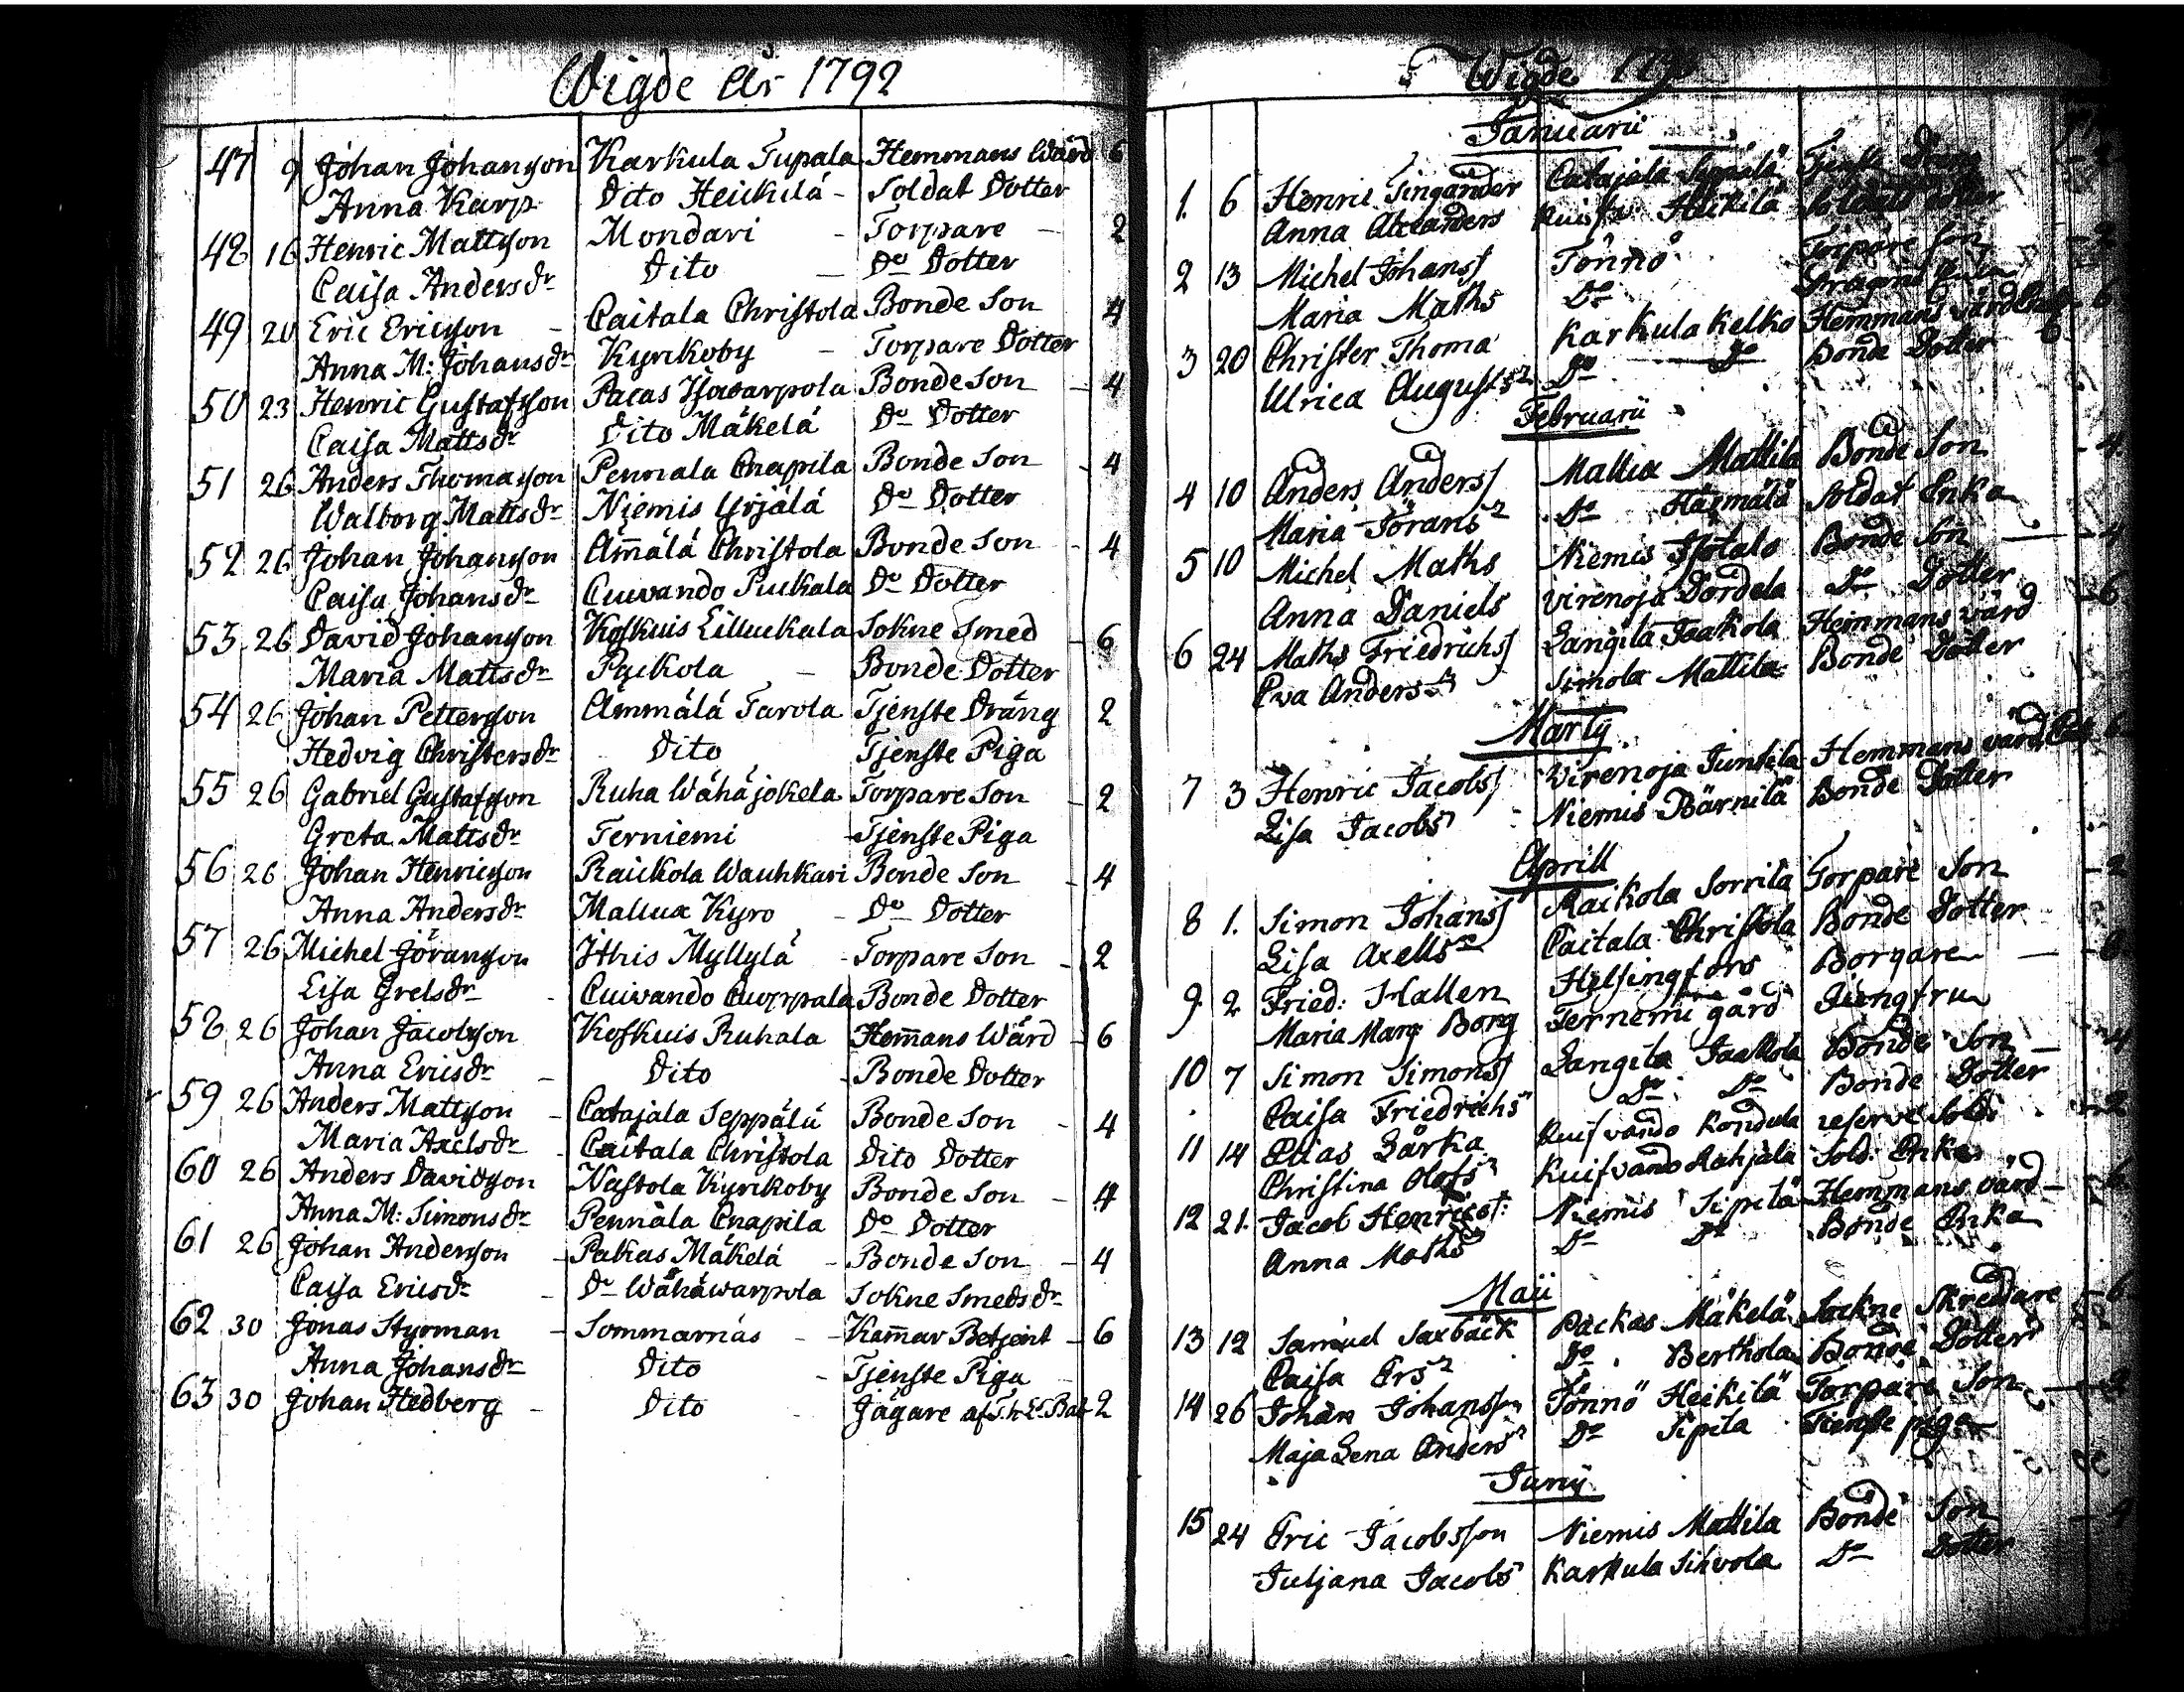 Wigde År 1792
47 9 Johan Johansson Karkula Tupala Hemmans Wärd 6
Anna Karp Dito Heickilä - Soldat Dotter
48 16 Henric Mattsson Mondari - Torpare - 2
Caisa Andersdr Dito - Do Dotter
49 20 Eric Ericsson - Caitala Christola Bonde Son 4
Anna M: Johansdr Kyrkoby - Torpare Dotter
50 23 Henric Gustafsson Pacas Isowarpola Bonde Son - 4
Caisa Mattsdr Dito Mäkelä Do Dotter
51 26 Anders Thomasson Pennala Anapila Bonde Son - 4
Walborg Mattsdr Niemis Yrjälä Do Dotter
52 26 Johan Johansson Am̄älä Christola Bonde Son - 4
Caisa Johansdr Cuivando Puckala Do Dotter
53 26 David Johansson Koskuis Lilluckala Sokne Smed - 6
Maria Mattsdr Pyckola - Bonde Dotter
54 26 Johan Pettersson Ammälä Tarola Tjenste Dräng 2
Hedvig Christersdr Dito Tjenste Piga
55 26 Gabriel Gustafsson Ruha Wähäjokela Torpare Son - 2
Greta Mattsdr Terniemi - Tjenste Piga
56 26 Johan Henricsson Raickola Wauhkari Bonde Son - 4
Anna Andersdr Mallux Kyro - Do Dotter
57 26 Michel Jöransson Ithis Myllylä - Torpare Son - 2
Lisa Grelsdr - Cuivando Cuoppala Bonde Dotter
58 26 Johan Jacobsson Koskuis Ruhala Hem̄ans Wärd - 6
Anna Ericsdr - Dito - Bonde Dotter
59 26 Anders Mattsson - Catajala Seppälä Bonde Son - 4
Maria Axelsdr - Caitala Christola Dito Dotter
60 26 Anders Davidsson Nastola Kyrkoby Bonde Son - 4
Anna M: Simonsdr Pennala Anapila Do Dotter
61 26 Johan Andersson - Pakas Mäkelä - Bonde Son - 4
Caisa Ericsdr - Do Wähäwarpola Sokne Smedsdr
62 30 Jonas Styrman - Sommarnäs - - Kam̄ar Betjent - 6
Anna Johansdr Dito - Tjenste Piga
63 30 Johan Hedberg - Dito - Jägare af T.h. L. Bat 2
Wigde
Januarii
1. 6 Henric Tingander Catajala Seppälä Tjenste Dräng - 2
Anna Alexanders Heikilä Soldats dotter
2 13 Michel Johanss Tönnö Torpare Son - 2
Maria Maths Do
3 20 Christer Thoma Karkula Kelko Hemmans värd - 6
Ulrica Augusts Do Do Bonde Dotter
Februarii
4 10 Anders Anderss Mallux Mattila Bonde Son - 4
Maria Jörans Do Soldat Enka
5 10 Michel Maths Niemis Bonde Son - 4
Anna Daniels Virenoja Dördela Do Dotter
6 24 Maths Friedrichss Langila Jaakola Hemmans värd - 6
Eva Anders Simola Mattila Bonde Dotter
Martij
7 3 Henric Jacobss Virenoja Juntila Hemmans värd 6
Lisa Jacobs Niemis Pärnilä Bonde Dotter
Aprill
8 1. Simon Johanss Raikola Sorrila Torpare Son - 2
Lisa Axells Caitala Christola Bonde Dotter
9. 2 Fried: Hallen Helsingfors Borgare - 6
Maria Marg Borg Ternemi gård Jungfru
10 7 Simon Simonss Langila Jaakola Bonde Son - 4
Caisa Friedrichs Do Do Bonde Dotter
11 14 Elias Särka Kuifvando Kondula reserve Sold: - 2
Christina Olofs Kuifvando Rahjala Sold: Enka
12 21. Jacob Henricss: Niemis Sipilä Hemmans värd - 6
Anna Maths Do Do Bonde Enka
Maii
13 12 Samuel Saxbäck Packas Mäkelä Sockne Skreddare - 6
Caisa Ers Do Berthola Bonde Dotter
14 26 Johan Johansson Tönnö Heikilä Torpare Son - 2
Maja Lena Anders Do Sipila Tienste piga
Junij
15 24 Eric Jacobsson Niemis Mattila Bonde Son - 4
Juljana Jacobs Karkula Sihvola Do Dotter